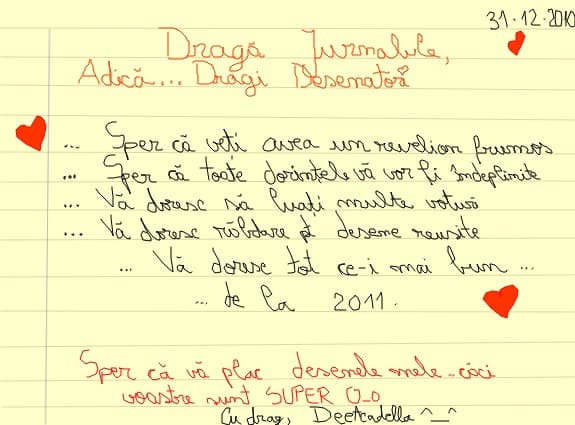 31.12.2010
Dragă Jurnalule,
Adică... Dragi Desenatori
... Sper că veți avea un revelion frumos
... Sper că toate dorințele vă vor fi îndeplinite
... Vă doresc să luați multe voturi
... Vă doresc răbdare și desene reusite
... Vă doresc tot ce-i mai bun ...
... de la 2011.
Sper că vă plac desenele mele..căci
voastre sunt SUPER O_O
Cu drag, DeeaCadella ^_^